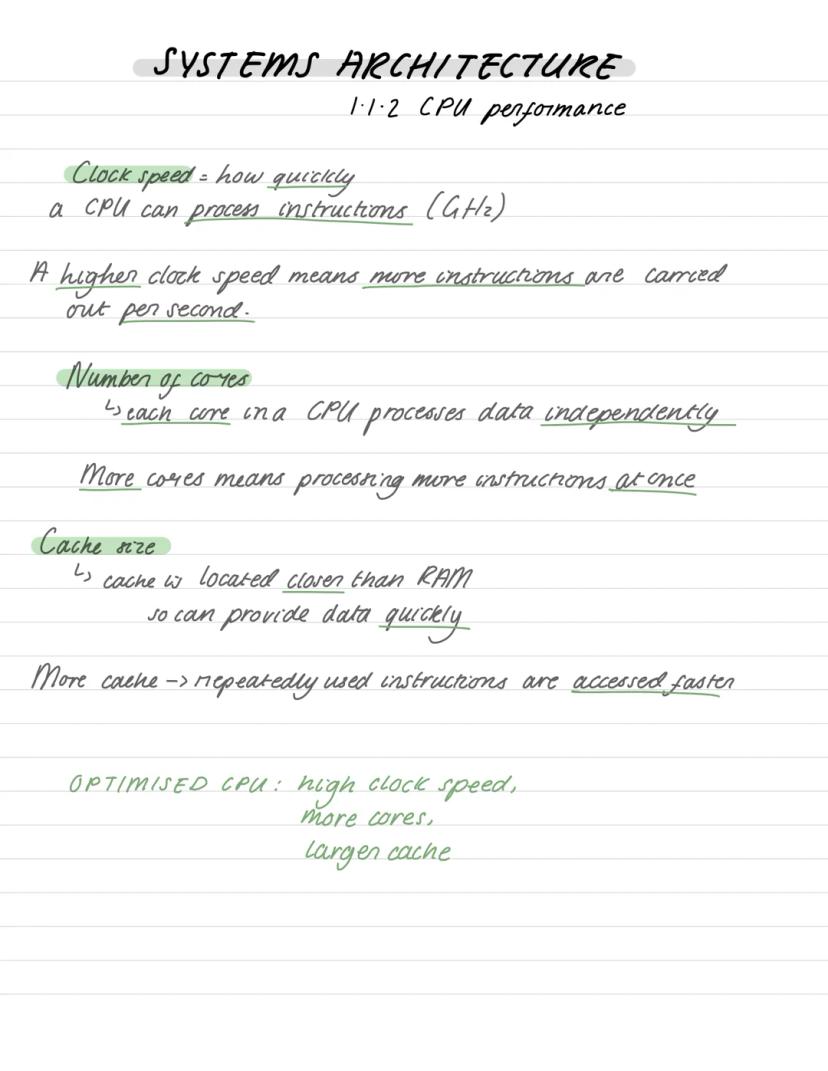 SYSTEMS ARCHITECTURE
1.1.2 CPU performance
Clock speed = how quickly
a CPU can process instructions (GHz)
A higher clock speed means more instructions are carried
out per second.
Number of cores
↳ each core in a CPU processes data independently
More cores means processing more instructions at once
Cache size
↳ cache is located closer than RAM
so can provide data quickly
More cache -> repeatedly used instructions are accessed faster
OPTIMISED CPU: high clock speed,
more cores,
larger cache